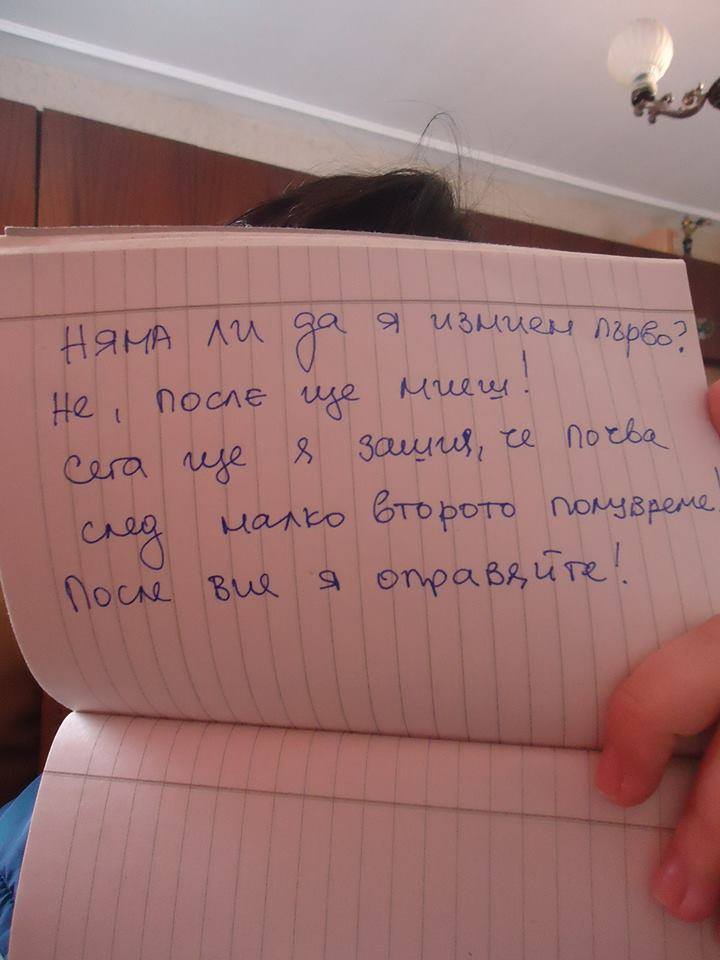 Няма ли да я измием първо?
Не, после ще миеш!
Сега ще я зашия, че почва
след малко второто полувреме!
После вие я оправяйте!